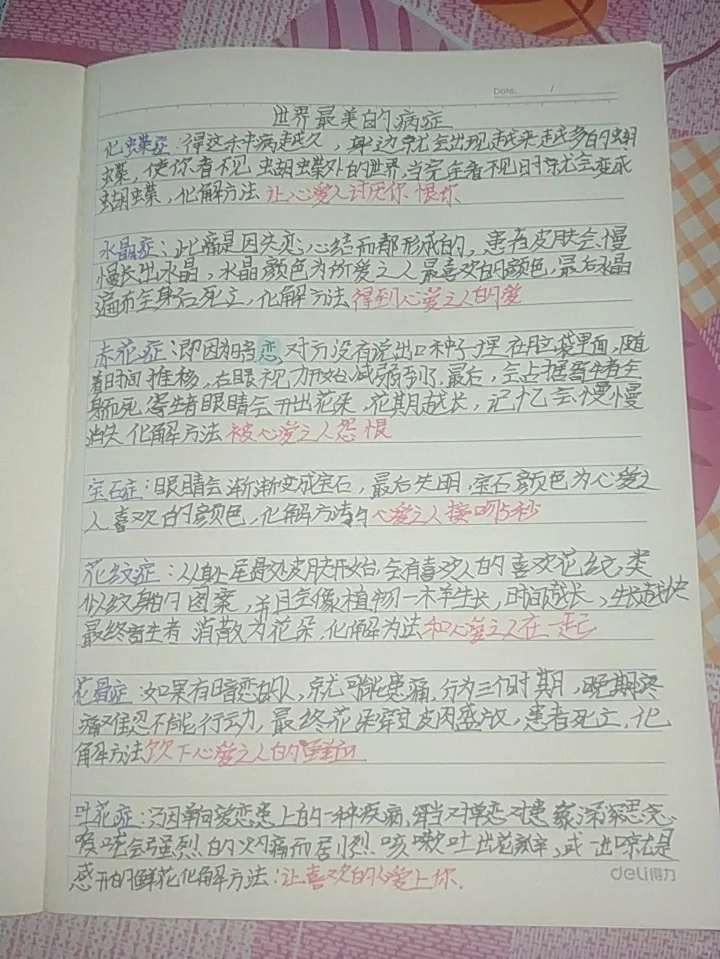 Date.      /
世界最美的病症
化蝶症:得这种病越久,身边就会出现越来越多的蝴
蝶,使你看不见蝴蝶外的世界,当完全看不见时就会变成
蝴蝶,化解方法 让心爱人讨厌你 恨你
水晶症:此病是因失恋心结而郁形成的,患者皮肤会慢
慢长出水晶,水晶颜色为所爱之人最喜欢的颜色,最后水晶
遍布全身后死亡,化解方法 得到心爱之人的爱
赤花症:即因为暗恋对方没有说出口种子埋在脑袋里面,随
着时间推移,右眼视力开始减弱到了最后,会占据寄生者全
身而死 寄生者眼睛会开出花朵,花期越长,记忆会慢慢
消失 化解方法 被心爱之人怨恨
宝石症:眼睛会渐渐变成宝石,最后失明,宝石颜色为心爱之
人喜欢的颜色,化解方法 心爱之人接吻5秒
花纹症:从身上尾最处皮肤开始,会有喜欢人的喜欢花纹,类
似纹身的图案,并且会像植物一样生长,时间越长,生长越快
最终寄生者 消散为花朵,化解方法 和心爱之人在一起
花骨症:如果有暗恋的人,就可能患病,行为三个时期,晚期疼
痛难忍不能行动,最终花朵穿过皮肉盛放,患者死亡,化
解方法 饮下心爱之人的血
吐花症:只因单向爱恋患上的一种疾病,当对单恋对象深深思念
喉咙会强烈的灼痛而剧烈 咳嗽吐出花瓣,或
的鲜花化解方法:让喜欢的人爱上你.
deli得力